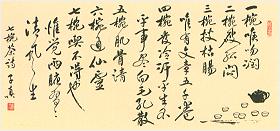 一碗喉吻润
二碗破孤闷
三碗搜枯腸
唯有文章五千卷
四碗發轻汗平生不
平事尽向毛孔散
五碗肌骨清
六碗通仙靈
七碗喫不得也
惟觉两腋習習
清风生
七碗茶诗